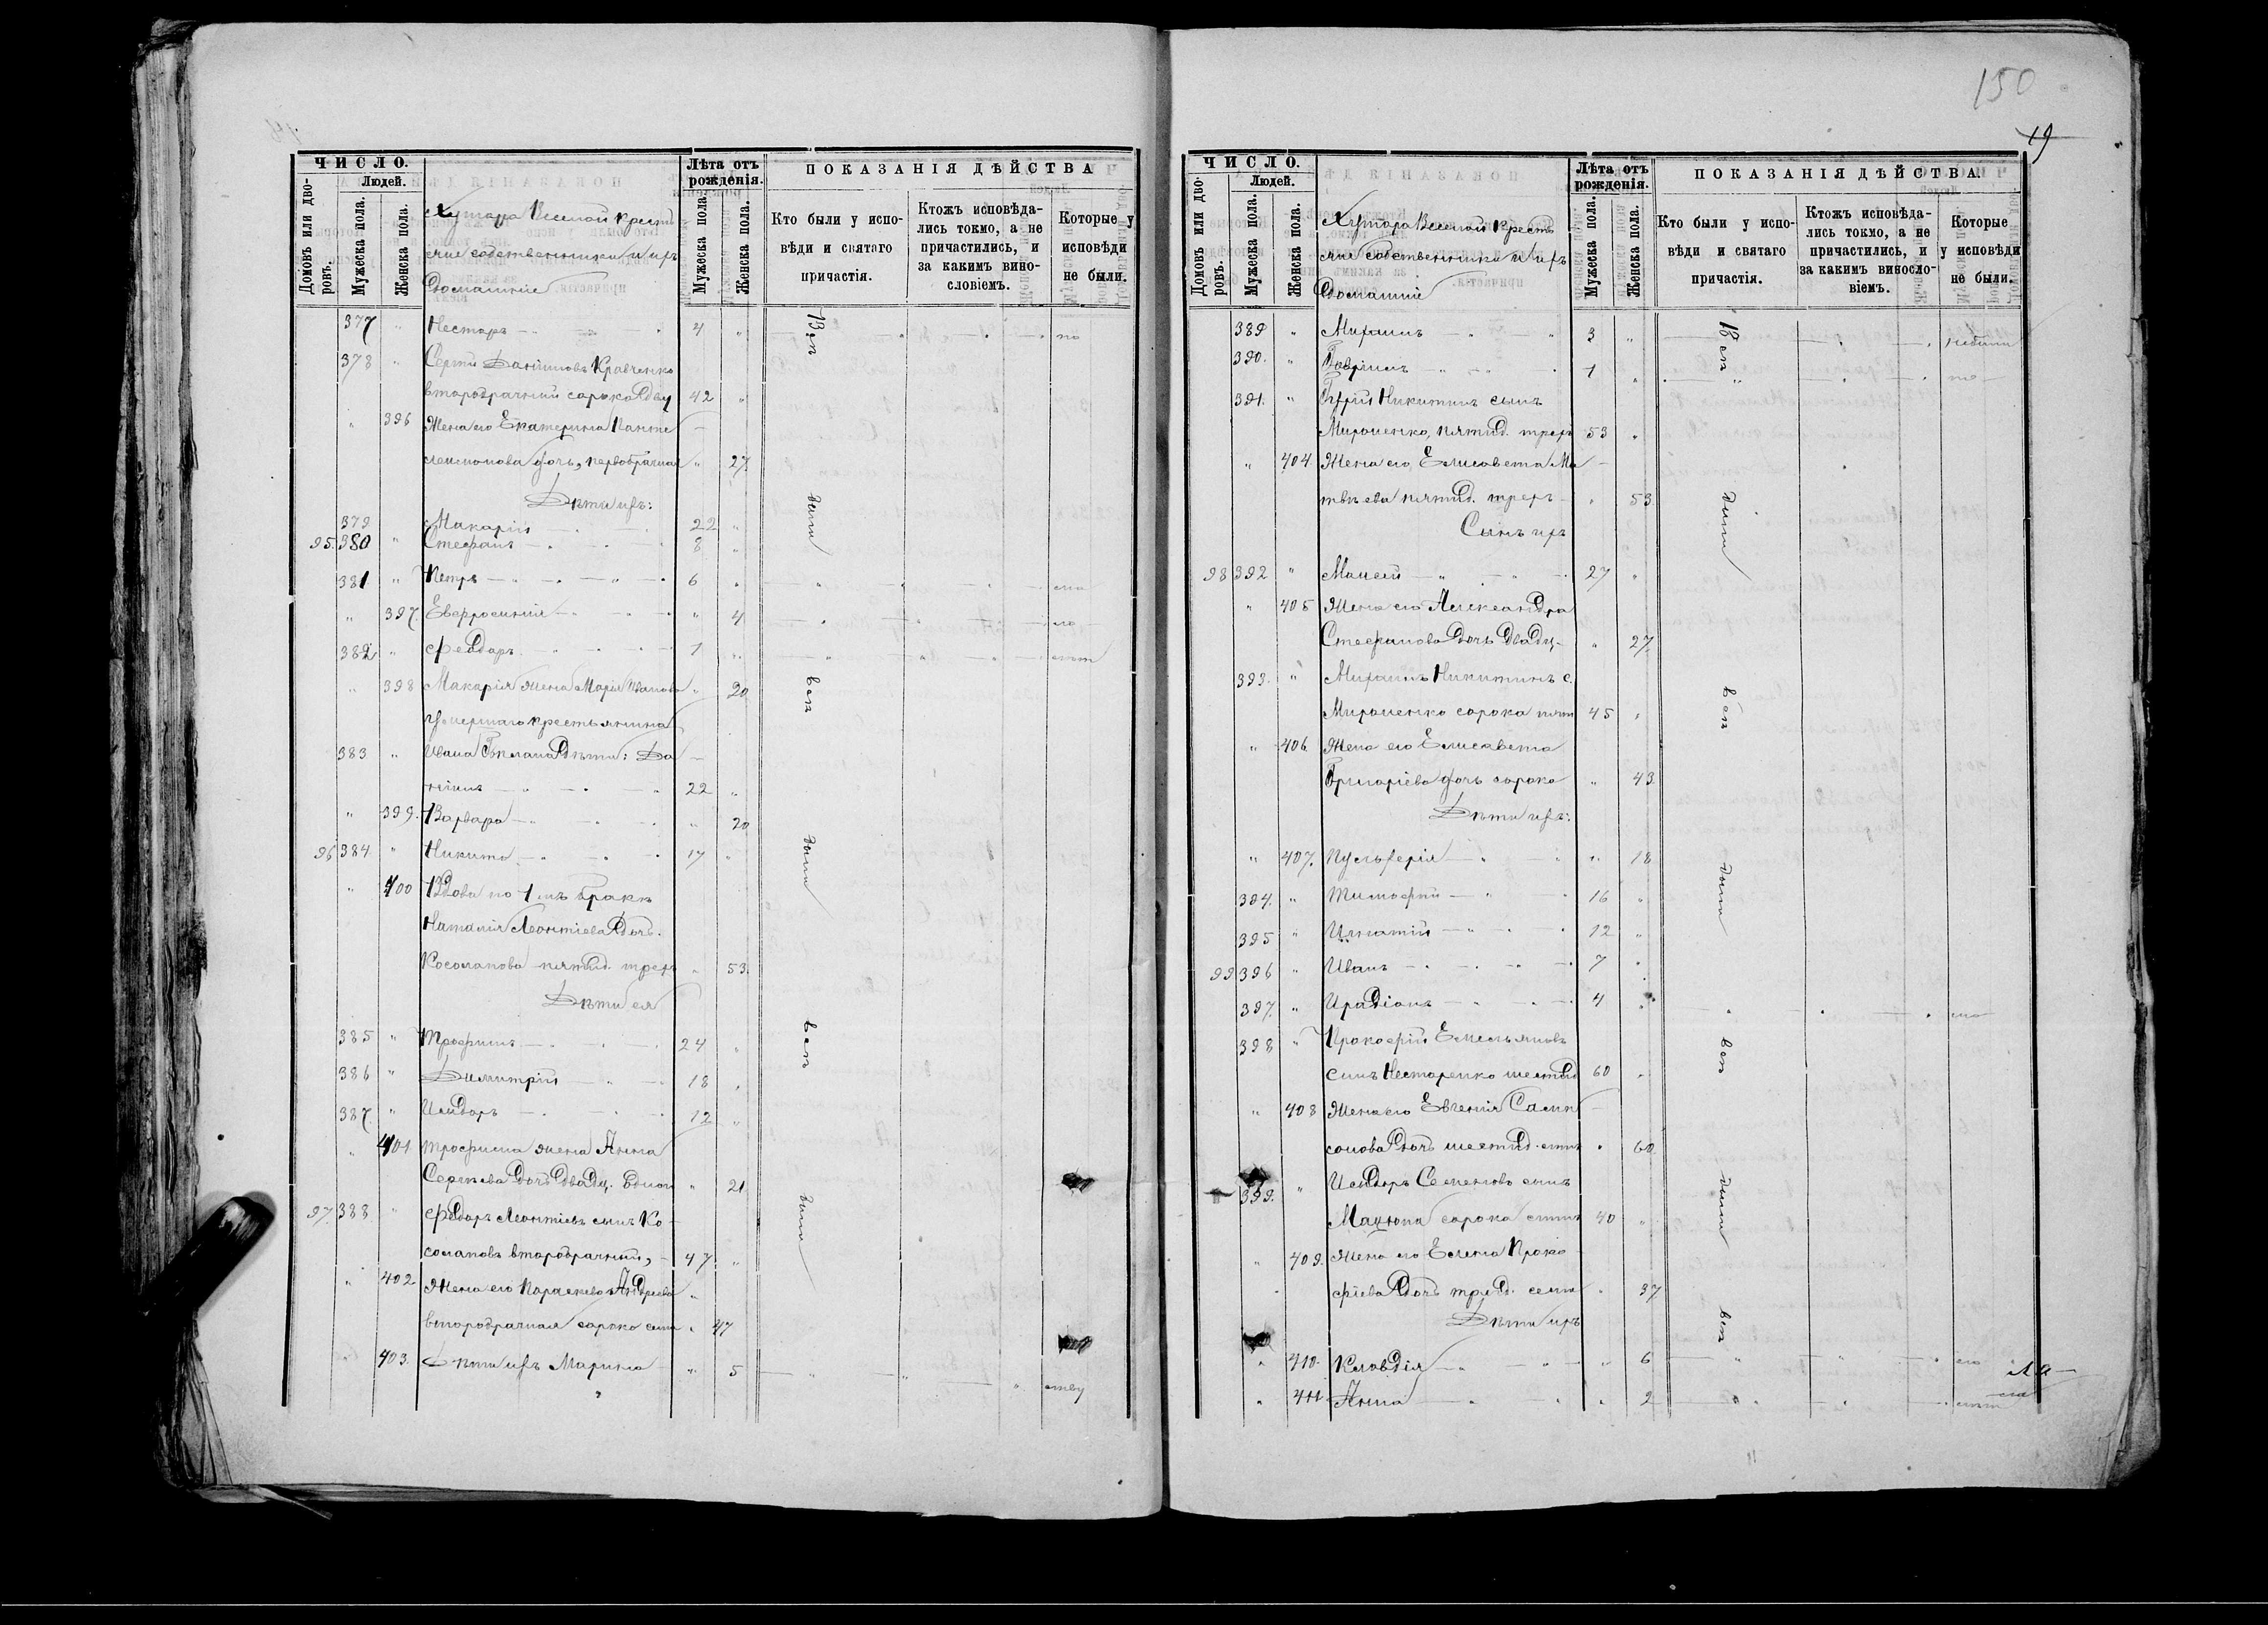 ЧИСЛО.
Домовъ или дворовъ.
Людей.
Мужеска пола.
Женска пола.
Хутора Веселой крестья
сіе собственники и ихъ
Домашніе
Лѣта отъ рожденія.
Мужеска пола.
Женска пола.
ПОКАЗАНІЯ ДѢЙСТВА
Кто были у исповѣди и святаго причастія.
Ктожъ исповѣдались токмо, а не причастились, и за какимъ винословіемъ.
Которые у исповѣди не были.
377 " Несторъ 4 " по
378 " Сергій Даніиловъ Кравченко
второбрачный сорока двц 42 "
" 396 Жена его Екатерина Панте
леимонова дочь, первобрачная " 27
Дѣти ихъ:
379 Макарій 22 "
95. 380 " Стефанъ 8 "
381 " Петръ 6 "
" 397. Евфросинія " 4
382 " Феодоръ 1 "
" 398 Макарія жена Марія Иванова " 20
Умершаго крестьянина
383 " Ивана Дѣти: Да
ніилъ 22 "
" 399. Варвара " 20
96 384. " Никита 17 "
" 400 Вдова по 1 мъ бракѣ
Наталія Леонтіева дочь.
Косолапова пятид. трехъ " 53.
Дѣти ея
385 " Трофимъ 24 "
386 " Димитрій 18 "
387. " Исидоръ 12 "
" 401 Трофима жена Анна
Сергѣева дочь двадц. одной " 21
97. 388 " Феодоръ Леонтіевъ сынъ Ко
солаповъ второбрачный, 47 "
" 402 Жена его Параскева Андреева "
второбрачная сорока семи " 47
403. Дѣти ихъ Марина " 5
Вси были вси были вси были
150
19
ЧИСЛО.
Домовъ или дворовъ.
Людей.
Мужеска пола.
Женска пола.
Хутора Веселой Кресть
сіе Собственники и ихъ
Домашніе
Лѣта отъ рожденія.
Мужеска пола.
Женска пола.
ПОКАЗАНІЯ ДѢЙСТВА
Кто были у исповѣди и святаго причастія.
Ктожъ исповѣдались токмо, а не причастились, и за какимъ винословіемъ.
Которые у исповѣди не были.
389 " Михаилъ 3 "
390. " Гавріилъ 1 "
391. " Никитинъ сынъ
Мироненко, пятид. трехъ 53 "
" 404. Жена его, Елисавета Ма
твѣева пятид. трехъ " 53.
Сынъ ихъ
98 392 " Моисей 27 "
" 405 Жена его Александра
Стефанова дочь двадц. " 27.
393. " Михаилъ Никитинъ с.
Мироненко сорока пяти 45 "
" 406 Жена его Елисавета
Григоріева дочь сорока " 43
Дѣти ихъ:
" 407. Пульхерія " 18
394. " Тимофей 16 "
395 " Игнатій 12 "
99 396 " Иванъ 7 "
397. " Иродіонъ 4 "
398 " Прокофій Емельяновъ
сынъ Нестеренко шестид 60 "
" 408 Жена его Евгенія Самп
сонова дочь шестид. " 60
399. " Исидоръ Семеновъ сынъ
Мацюпа сорока 40 "
" 409. Жена его Елена Проко
фіева дочь трид. семи " 37
Дѣти ихъ
" 410. Клавдія " 6
" 411 Анна " 2
Вси были вси были вси были вси